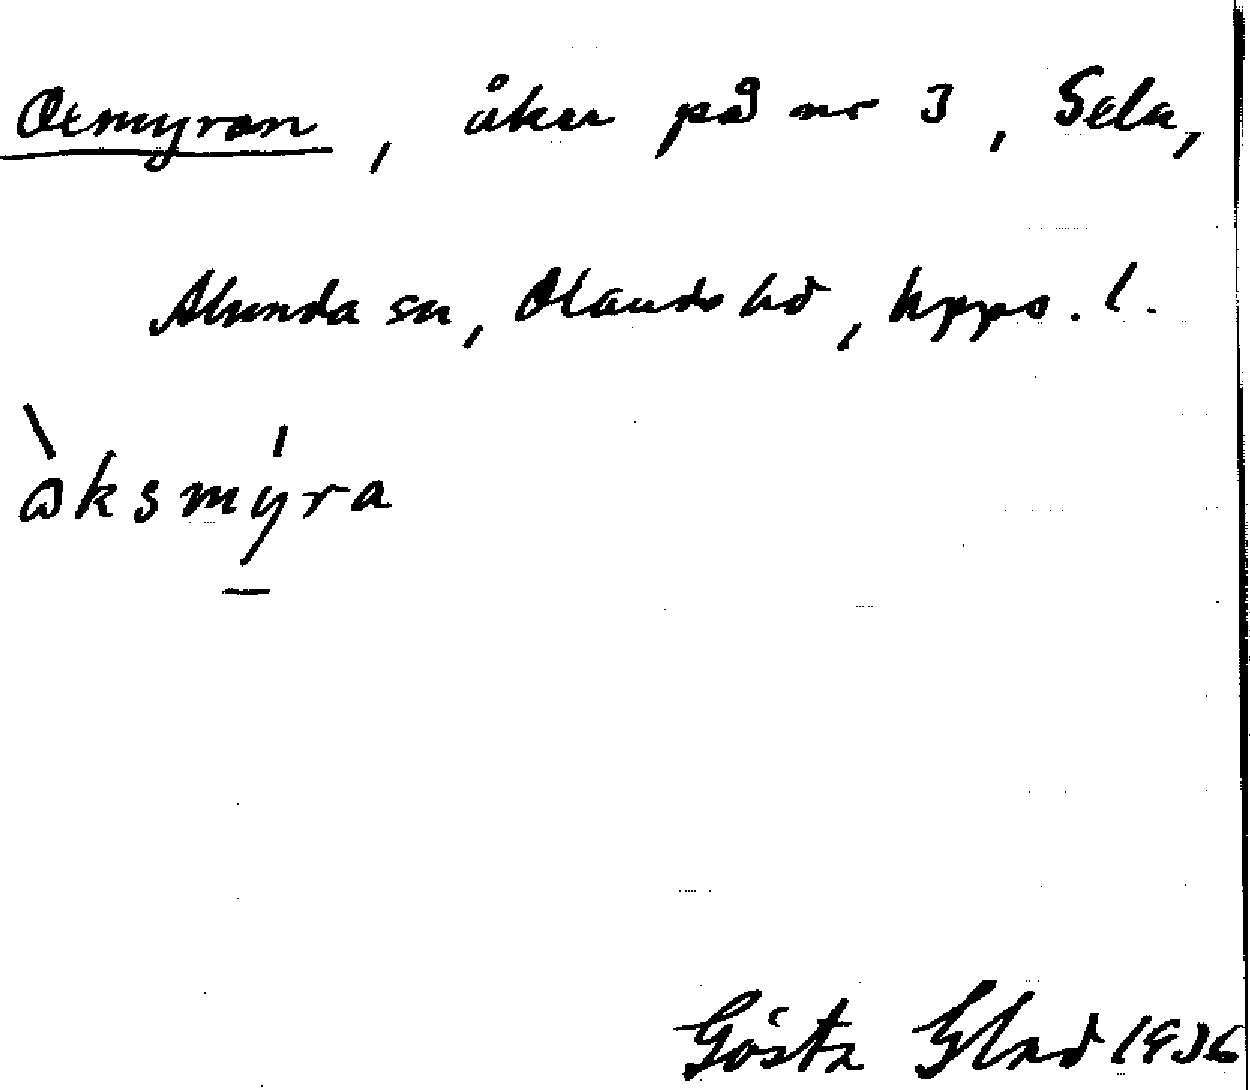 Oxmyran, åker på nr 3, Sela,
Alunda sn, Olands hd, Upps. l.
ɷ̀ksmýra
Gösta Glad 1936